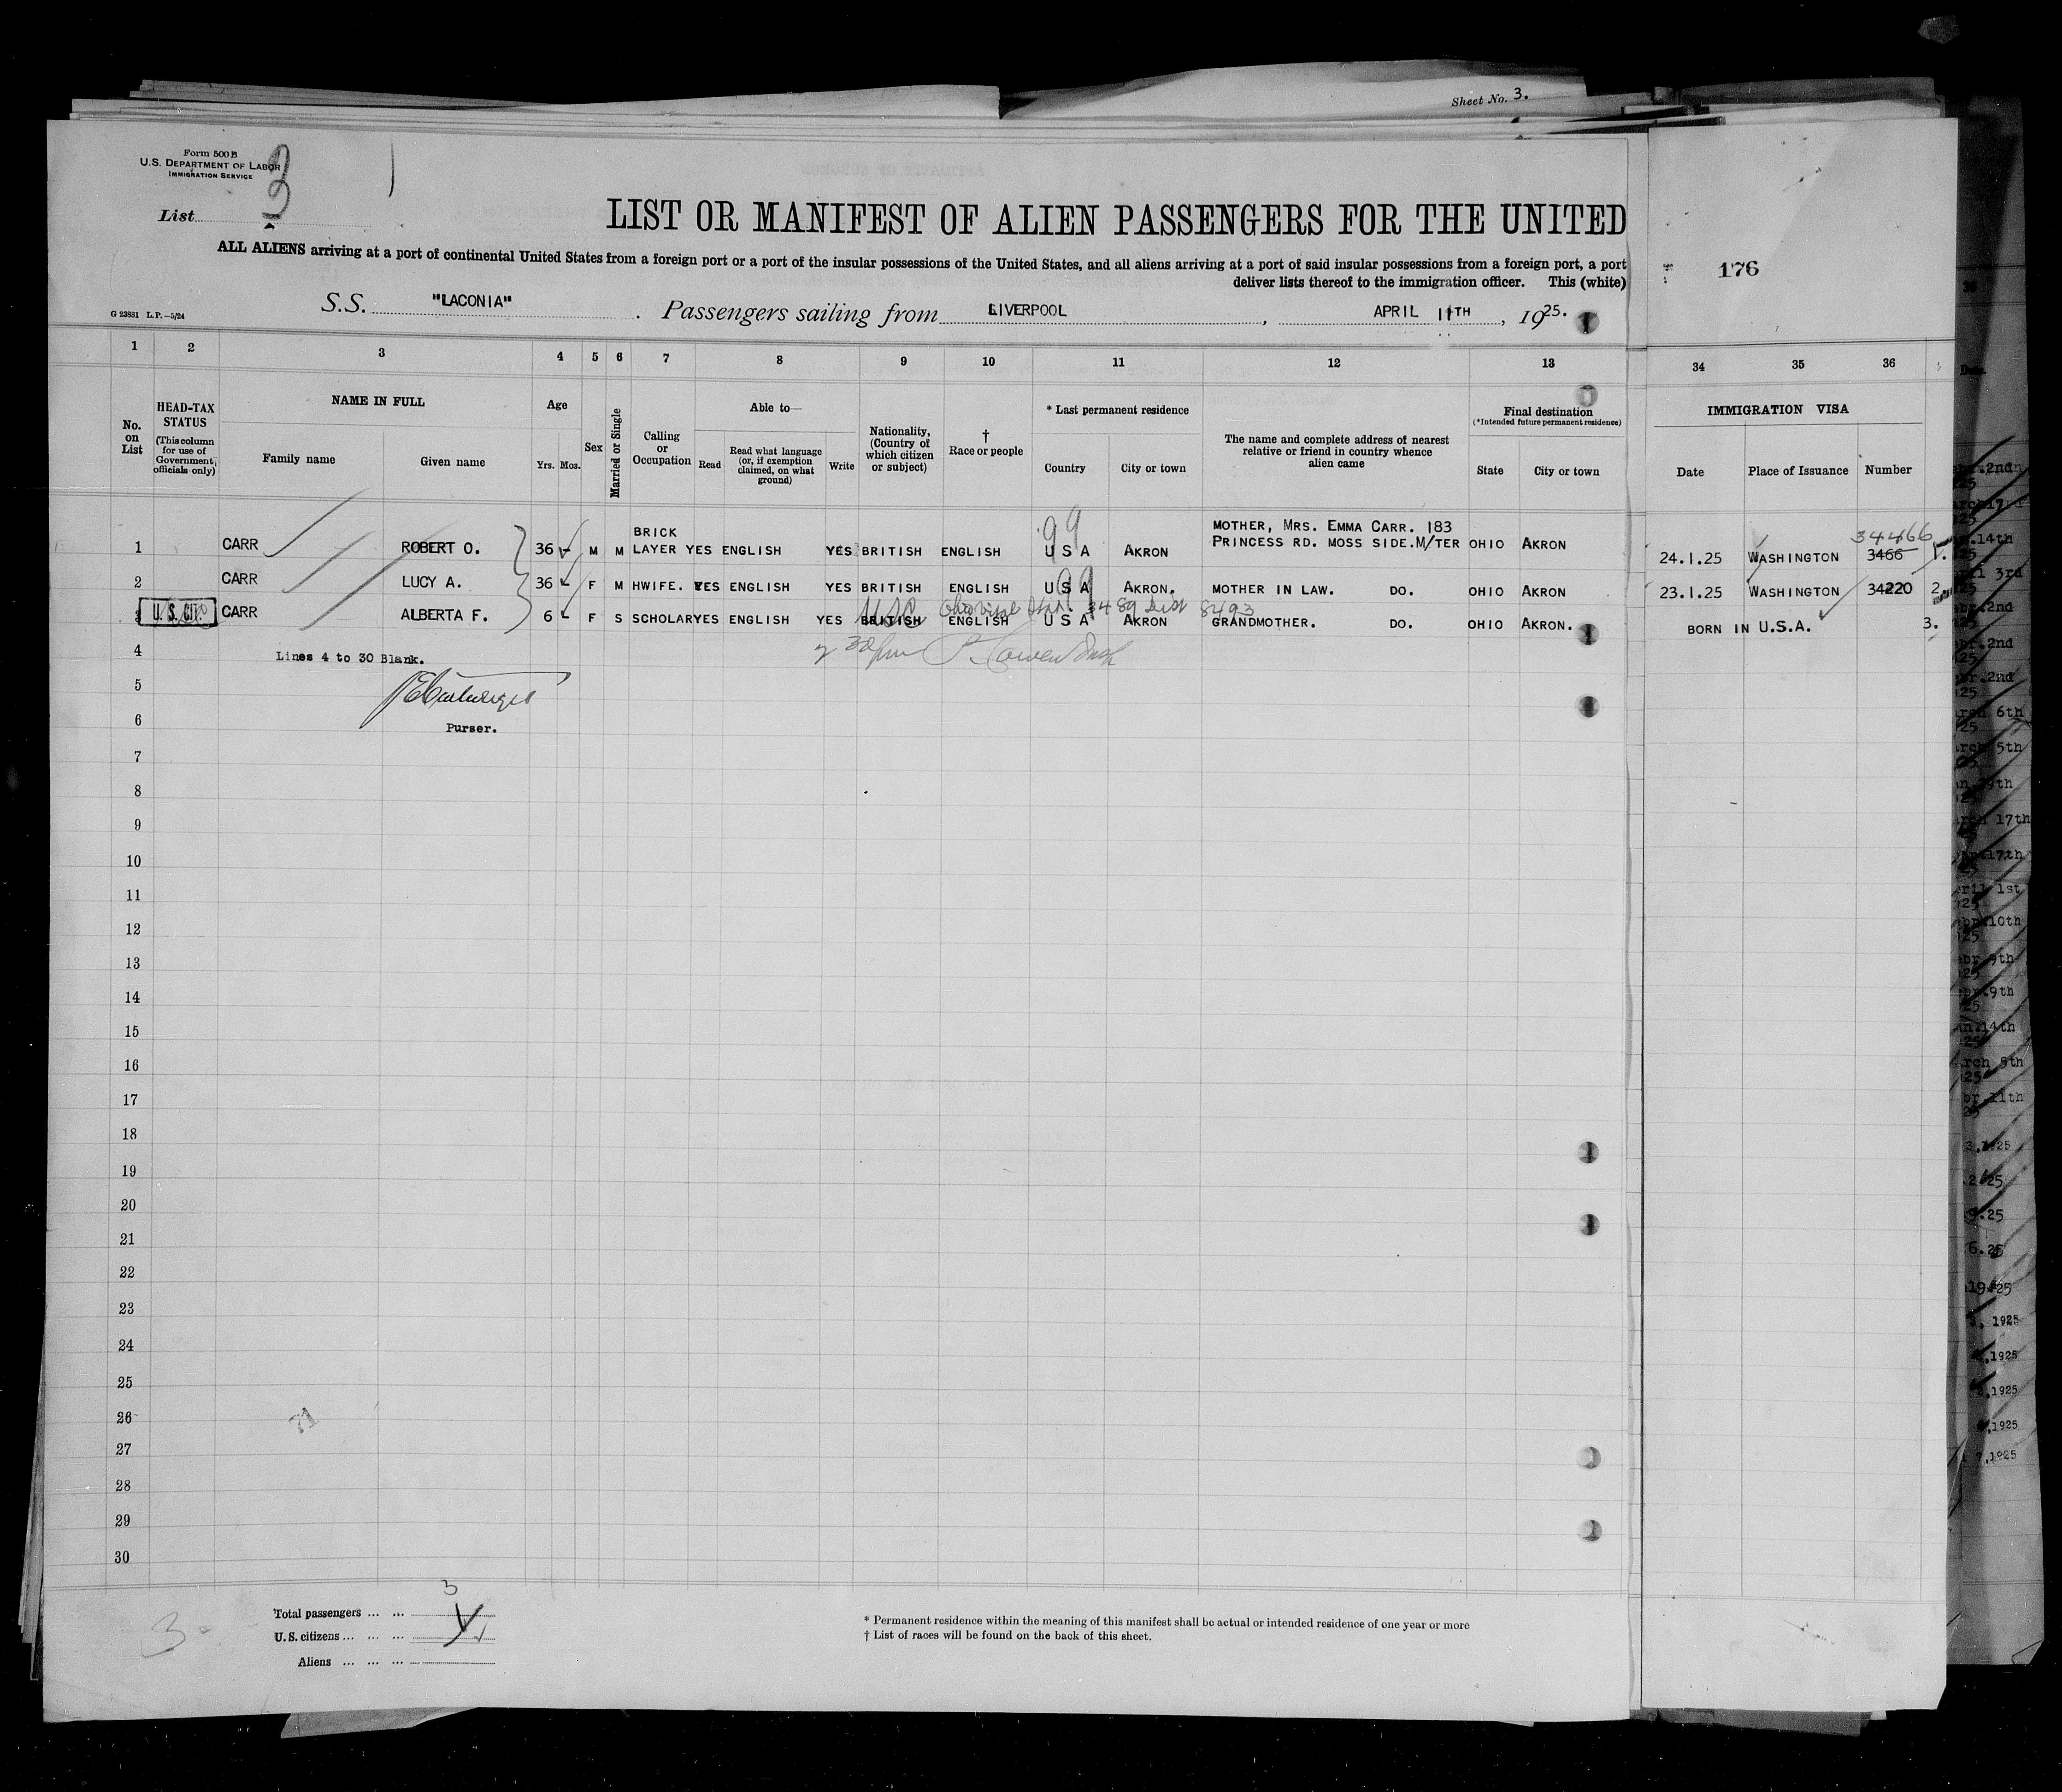 Sheet No. 3.
Form 500 B
U.S. DEPARTMENT OF LABOR
IMMIGRATION SERVICE
List 3
LIST OR MANIFEST OF ALIEN PASSENGERS FOR THE UNITED
ALL ALIENS arriving at a port of continental United States from a foreign port or a port of the insular possessions of the United States, and all aliens arriving at a port of said insular possessions from a foreign port, a port
deliver lists thereof to the immigration officer. This (white)
176
G 23831 L.P.—5/24
S.S. "LACONIA". Passengers sailing from LIVERPOOL, APRIL 11TH, 1925.
1 2 3 4 5 6 7 8 9 10 11 12 13 34 35 36
No. on List
HEAD-TAX STATUS
(This column for use of Government officials only)
NAME IN FULL
Family name
Given name
Age
Yrs. Mos.
Sex
Married or Single
Calling or Occupation
Able to—
Read
Read what language (or, if exemption claimed, on what ground)
Write
Nationality, (Country of which citizen or subject)
† Race or people
* Last permanent residence
Country
City or town
The name and complete address of nearest relative or friend in country whence alien came
Final destination
(*Intended future permanent residence)
State
City or town
IMMIGRATION VISA
Date
Place of Issuance
Number
99
BRICK
MOTHER, MRS. EMMA CARR. 183
34466
1 CARR ROBERT O. 36 M M LAYER YES ENGLISH YES BRITISH ENGLISH U S A AKRON PRINCESS RD. MOSS SIDE. M/TER OHIO AKRON 24.1.25 WASHINGTON 3466 1.
99
2 CARR LUCY A. 36 F M HWIFE. YES ENGLISH YES BRITISH ENGLISH U S A AKRON. MOTHER IN LAW. DO. OHIO AKRON 23.1.25 WASHINGTON 34220 2
3489 8493
3 U.S. CIT. CARR ALBERTA F. 6 F S SCHOLAR YES ENGLISH YES BRITISH ENGLISH U S A AKRON GRANDMOTHER. DO. OHIO AKRON. BORN IN U.S.A. 3.
4 Lines 4 to 30 Blank.
5
6
Purser.
7
8
9
10
11
12
13
14
15
16
17
18
19
20
21
22
23
24
25
26
27
28
29
30
3
Total passengers ... ...
U. S. citizens ... ... ...
Aliens ... ... ...
3
* Permanent residence within the meaning of this manifest shall be actual or intended residence of one year or more
† List of races will be found on the back of this sheet.